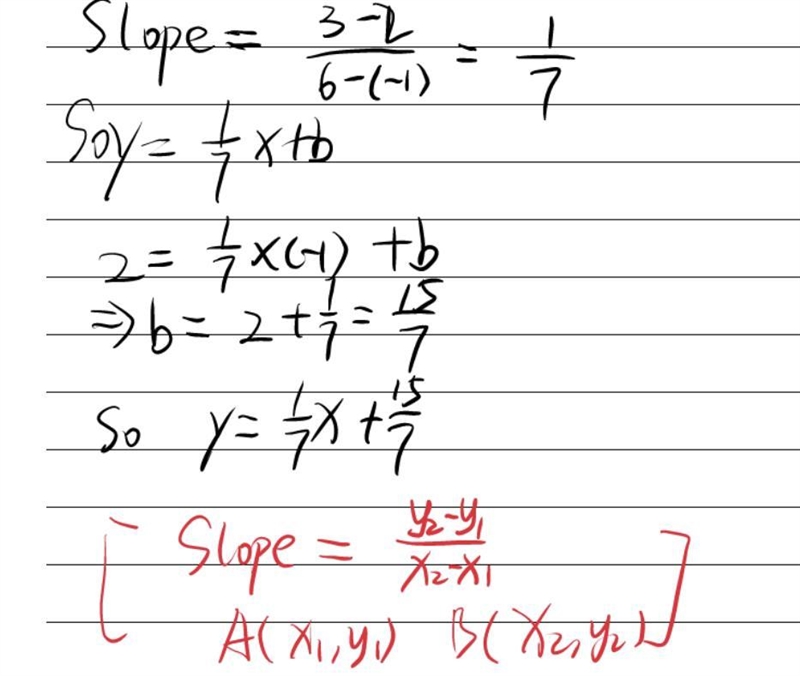 Slope = (3-2)/(6-(-1)) = 1/7
So y = 1/7 x + b
2 = 1/7 x (-1) + b
⇒ b = 2 + 1/7 = 15/7
So y = 1/7 x + 15/7
[ Slope = (y₂-y₁)/(x₂-x₁)
A(x₁,y₁) B(x₂,y₂) ]